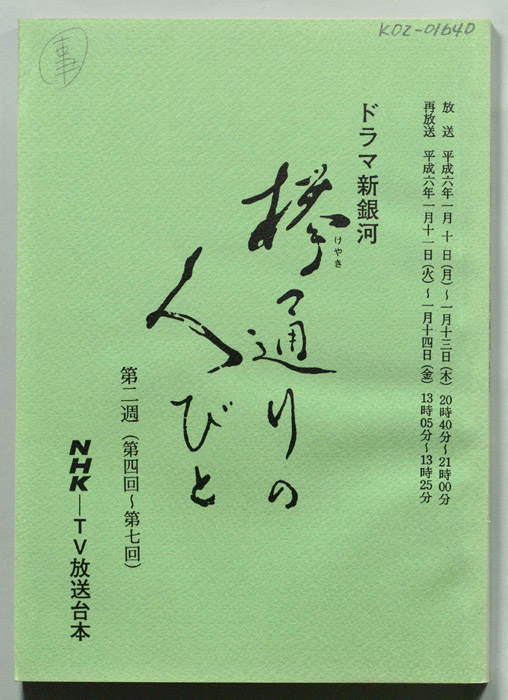 K02-01640
事
放　送　平成六年一月 十 日(月)〜一月十三日(木) 20時40分〜21時00分
再放送　平成六年一月十一日(火)〜一月十四日(金) 13時05分〜13時25分
ドラマ新銀河
欅通りの
けやき
人びと
第二週(第四回〜第七回)
NHK―TV放送台本